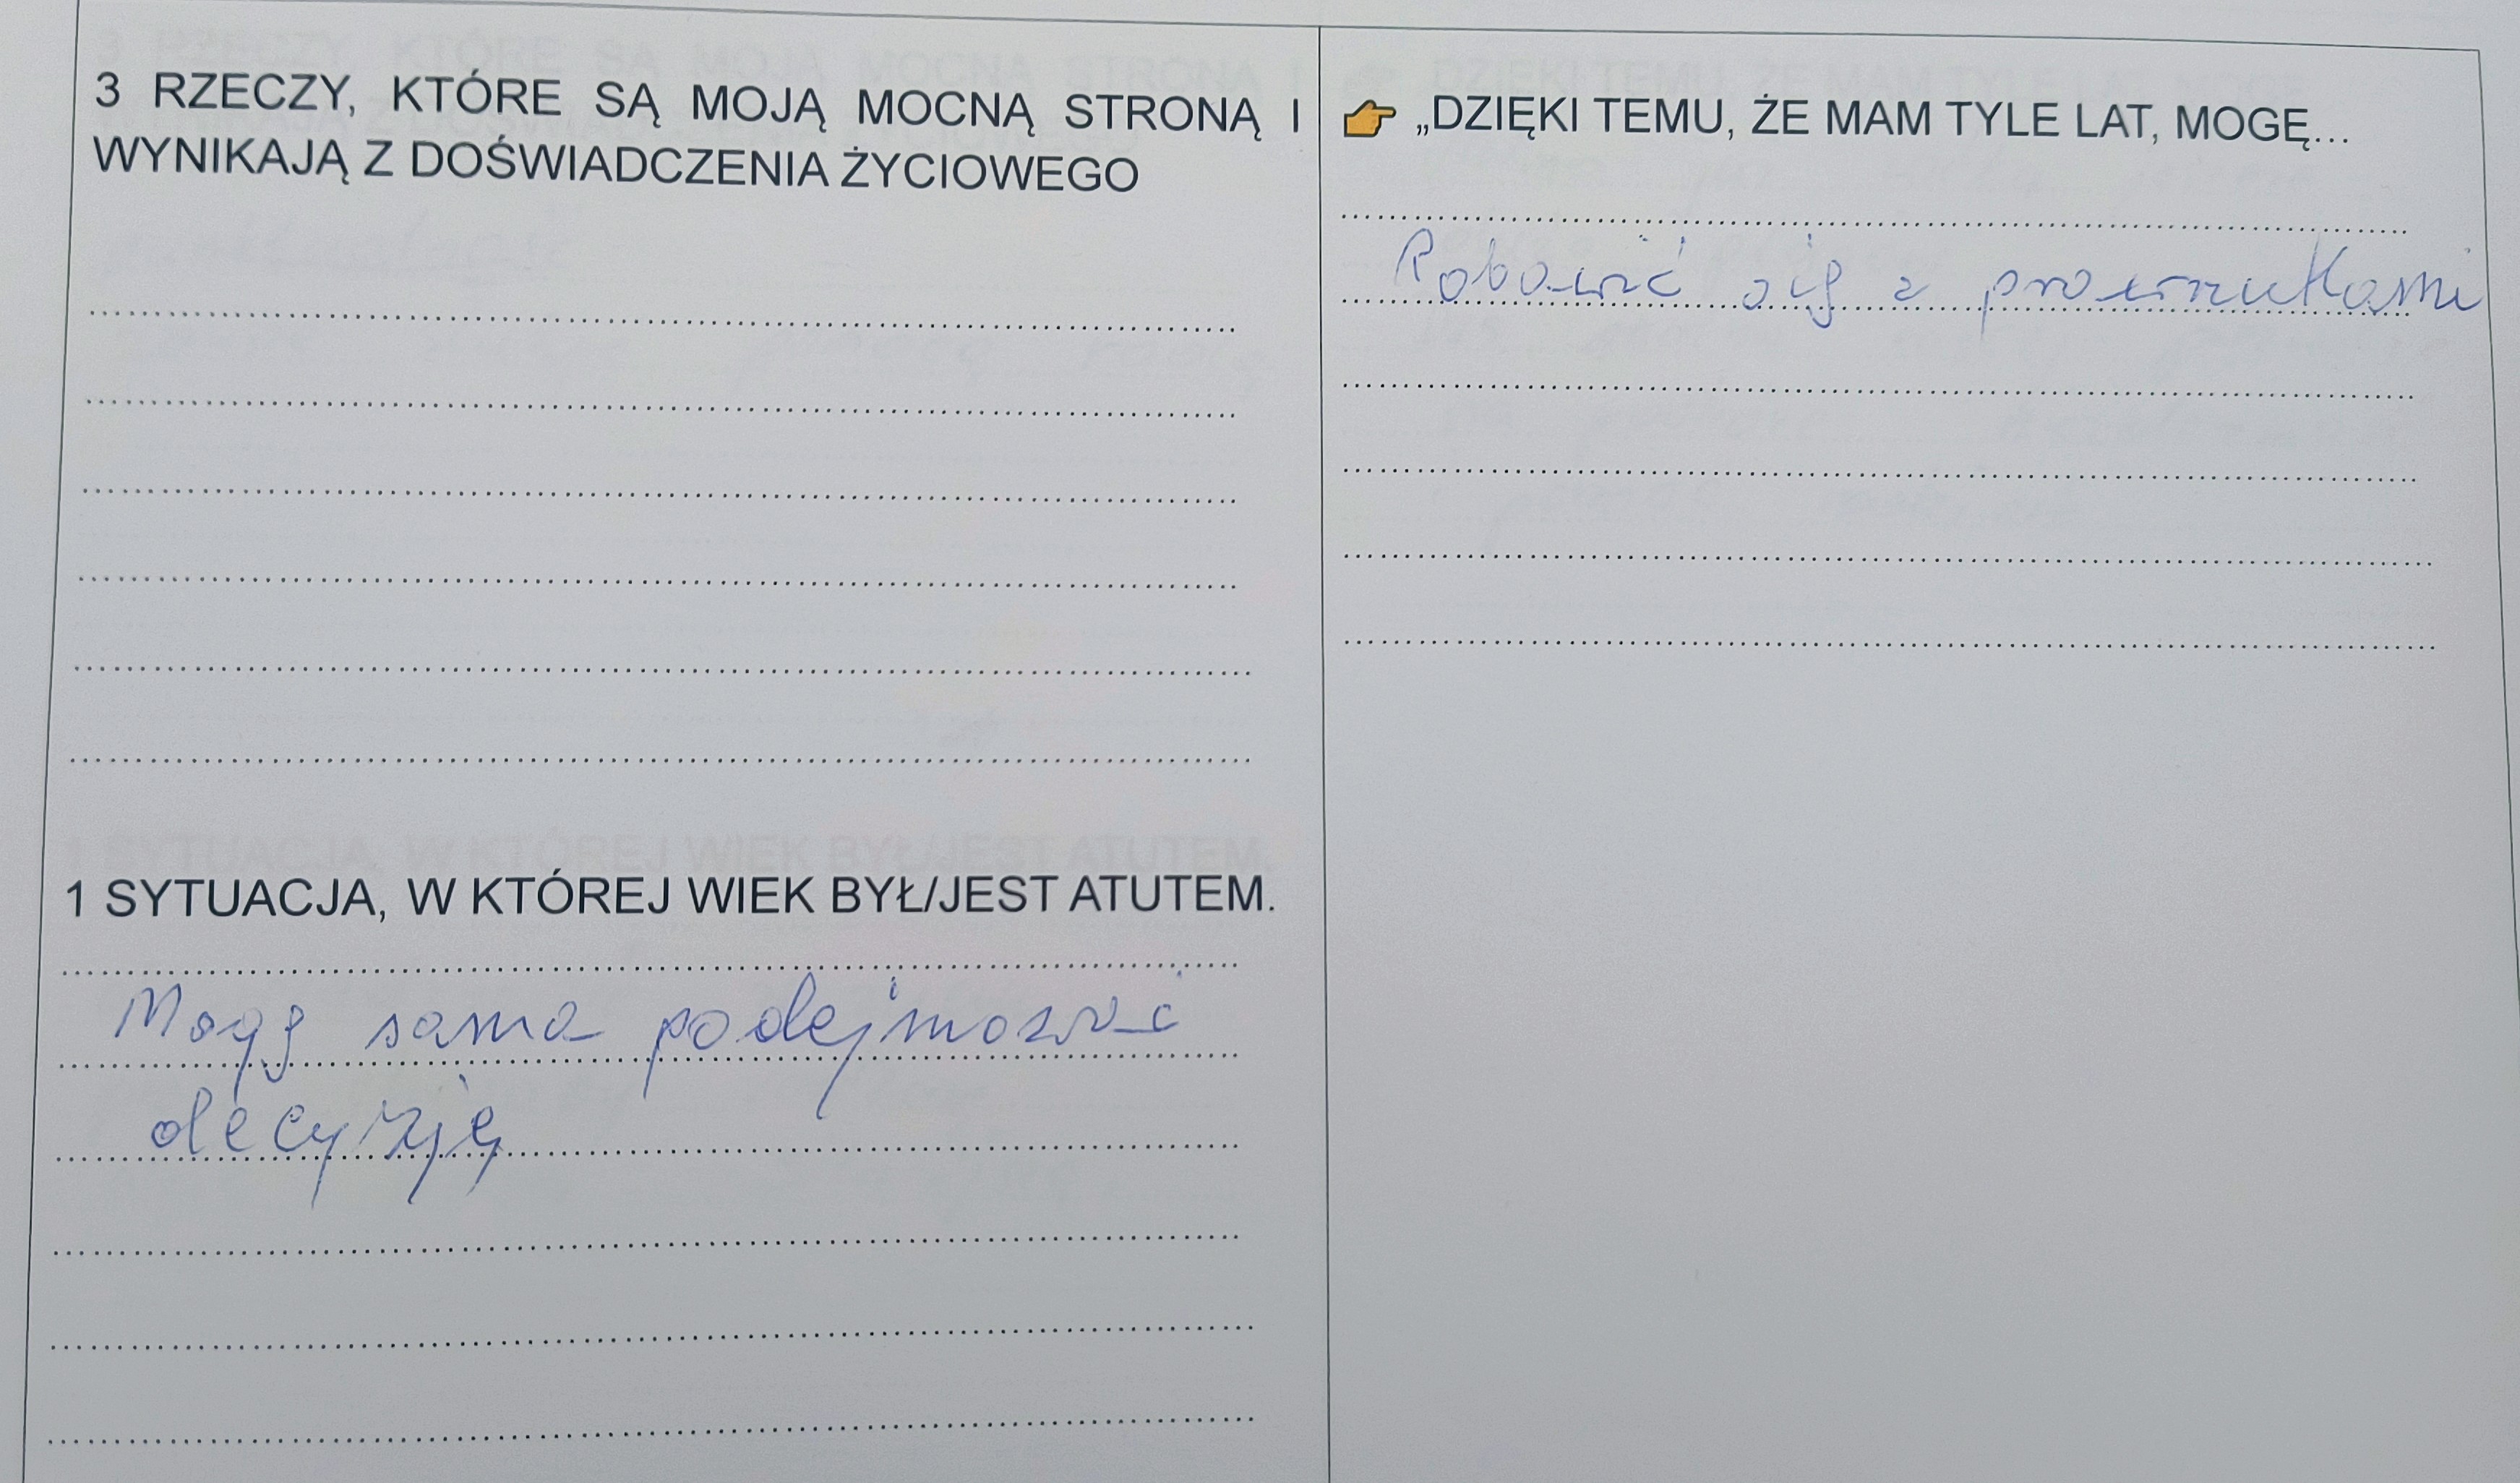 3 RZECZY, KTÓRE SĄ MOJĄ MOCNĄ STRONĄ I
WYNIKAJĄ Z DOŚWIADCZENIA ŻYCIOWEGO
1 SYTUACJA, W KTÓREJ WIEK BYŁ/JEST ATUTEM.
Mogę sama podejmować
decyzję
👉 „DZIĘKI TEMU, ŻE MAM TYLE LAT, MOGĘ...
Pobawić się z prawnukami